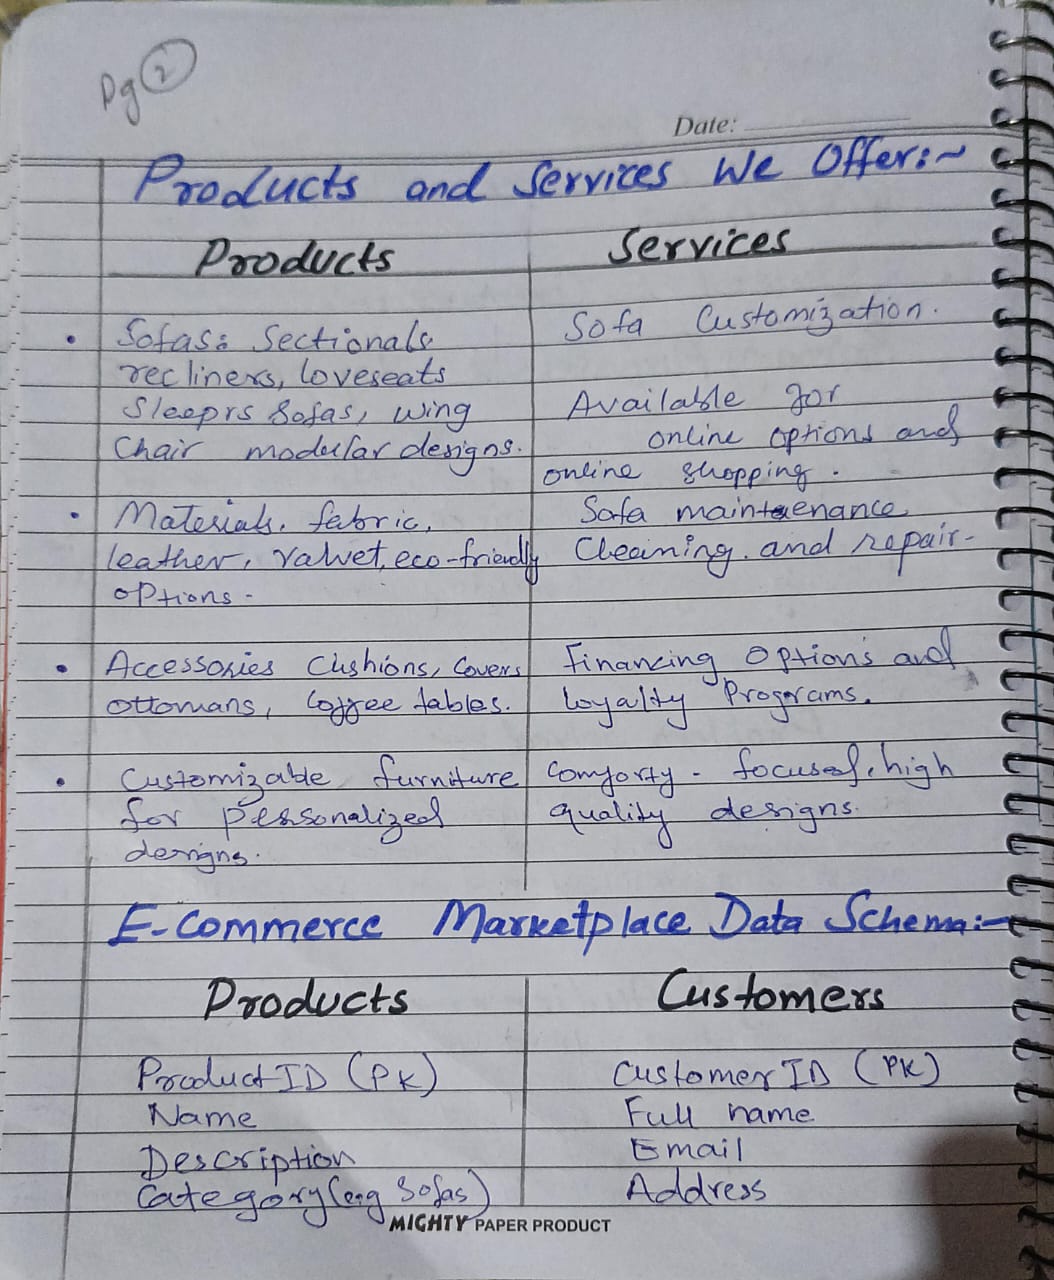 Pg 2
Date:
Products and Services We Offer:~
Products
Services
• Sofas: Sectionals
recliners, loveseats
Sleeprs Sofas, wing
Chair modular designs.
Sofa Customization.
Available for
online options and
online shopping.
• Materials, fabric,
leather, Valvet, eco-friendly
options.
Sofa maintaenance
Cleaning. and repair-
• Accessories Cushions, Covers
ottomans, Coffee tables.
Financing Options and
loyalty Programs.
• Customizable furniture
for personalized
designs.
Comforty - focused, high
quality designs.
E-Commerce Marketplace Data Schema:-
Products
Customers
Product ID (PK)
Name
Description
Category (eg Sofas)
Customer ID (PK)
Full name
Email
Address
MIGHTY PAPER PRODUCT